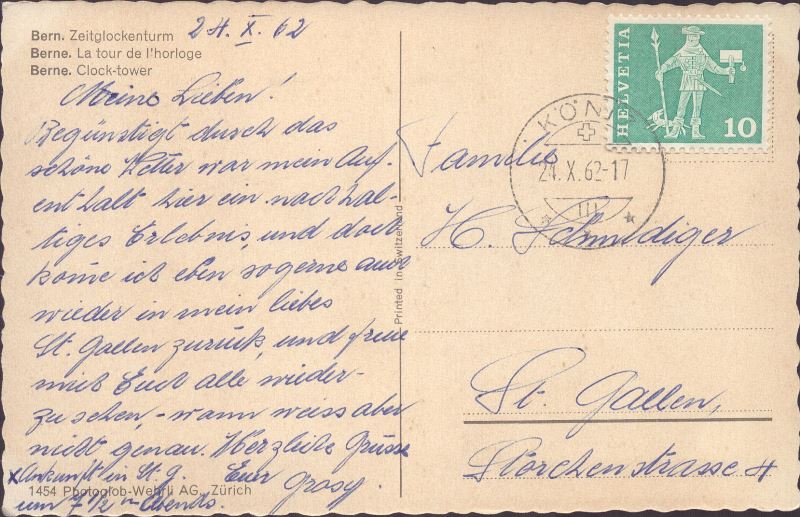 Bern. Zeitglockenturm
Berne. La tour de l'horloge
Berne. Clock-tower
24. X. 62
Meine Lieben!
Begünstigt durch das
schöne Wetter war mein Auf-
enthalt hier ein nachhal-
tiges Erlebnis, und doch
kome ich eben sogerne auch
wieder in mein liebes
St. Gallen zurück, und freue
mich Euch alle wieder-
zusehen, - wann weiss aber
nicht genau. Herzliche Grüsse
Euer
Grosy.
x Ankunft in St. G.
um 7 1/2 h Abends.
1454 Photoglob-Wehrli AG, Zürich
Printed in Switzerland
HELVETIA
10
KÖNIZ
24. X. 62-17
Familie
H. Schmidiger
St. Gallen,
Storchenstrasse 4